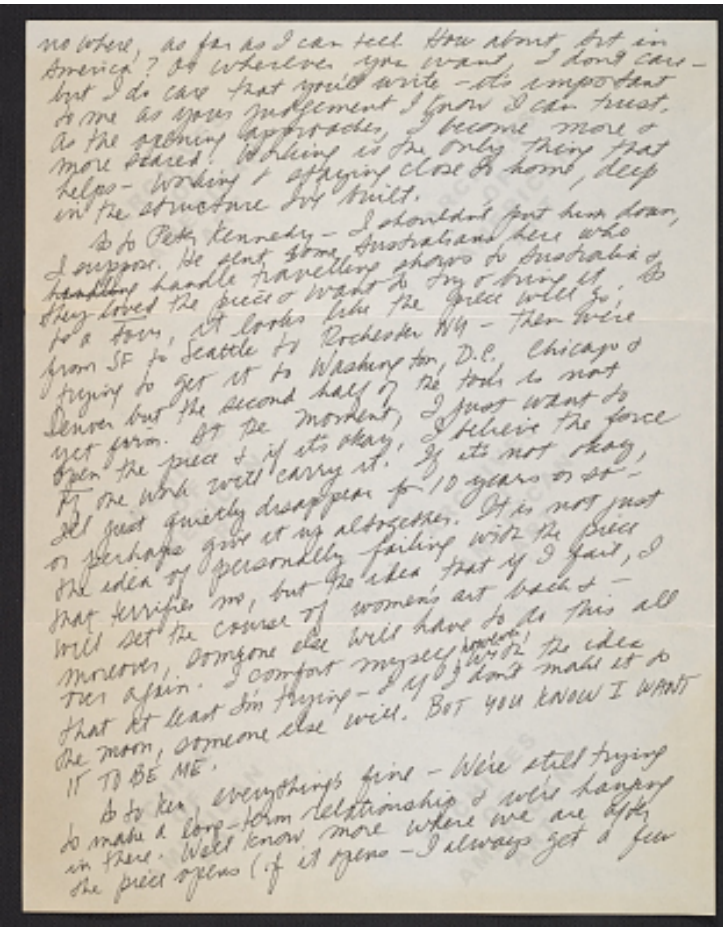 no where, as far as I can tell How about Art in
America? Or wherever you want, I don't care –
but I do care that you'll write – it's important
to me as your judgement I know I can trust.
As the opening approaches, I become more &
more scared. Working is the only thing that
helps – working & staying close to home, deep
in the structure I've built.
As to Peter Kennedy – I shouldn't put him down,
I suppose. He sent some Australians here who
handling handle travelling shows to Australia &
they loved the piece & want to try & bring it. As
to a tour, it looks like the piece will go
from SF to Seattle to Rochester NY – then we're
trying to get it to Washington, D.C. Chicago &
Denver but the second half of the tour is not
yet firm. At the moment, I just want to
open the piece & if it's okay, I believe the force
of the work will carry it. If it's not okay,
I'll just quietly disappear for 10 years or so –
or perhaps give it up altogether. It is not just
the idea of personally failing with the piece
that terrifies me, but the idea that if I fail, I
will set the course of women's art back & –
moreover, someone else will have to do this all
over again. I comfort myself, however, with the idea
that at least I'm trying – & if I don't make it to
the moon, someone else will. BUT YOU KNOW I WANT
IT TO BE ME.
As to Ken, everything's fine – We're still trying
to make a long-term relationship & we're hanging
in there. We'll know more where we are after
the piece opens (if it opens – I always get a few
ARCHIVES
OF
AMERICAN
ART